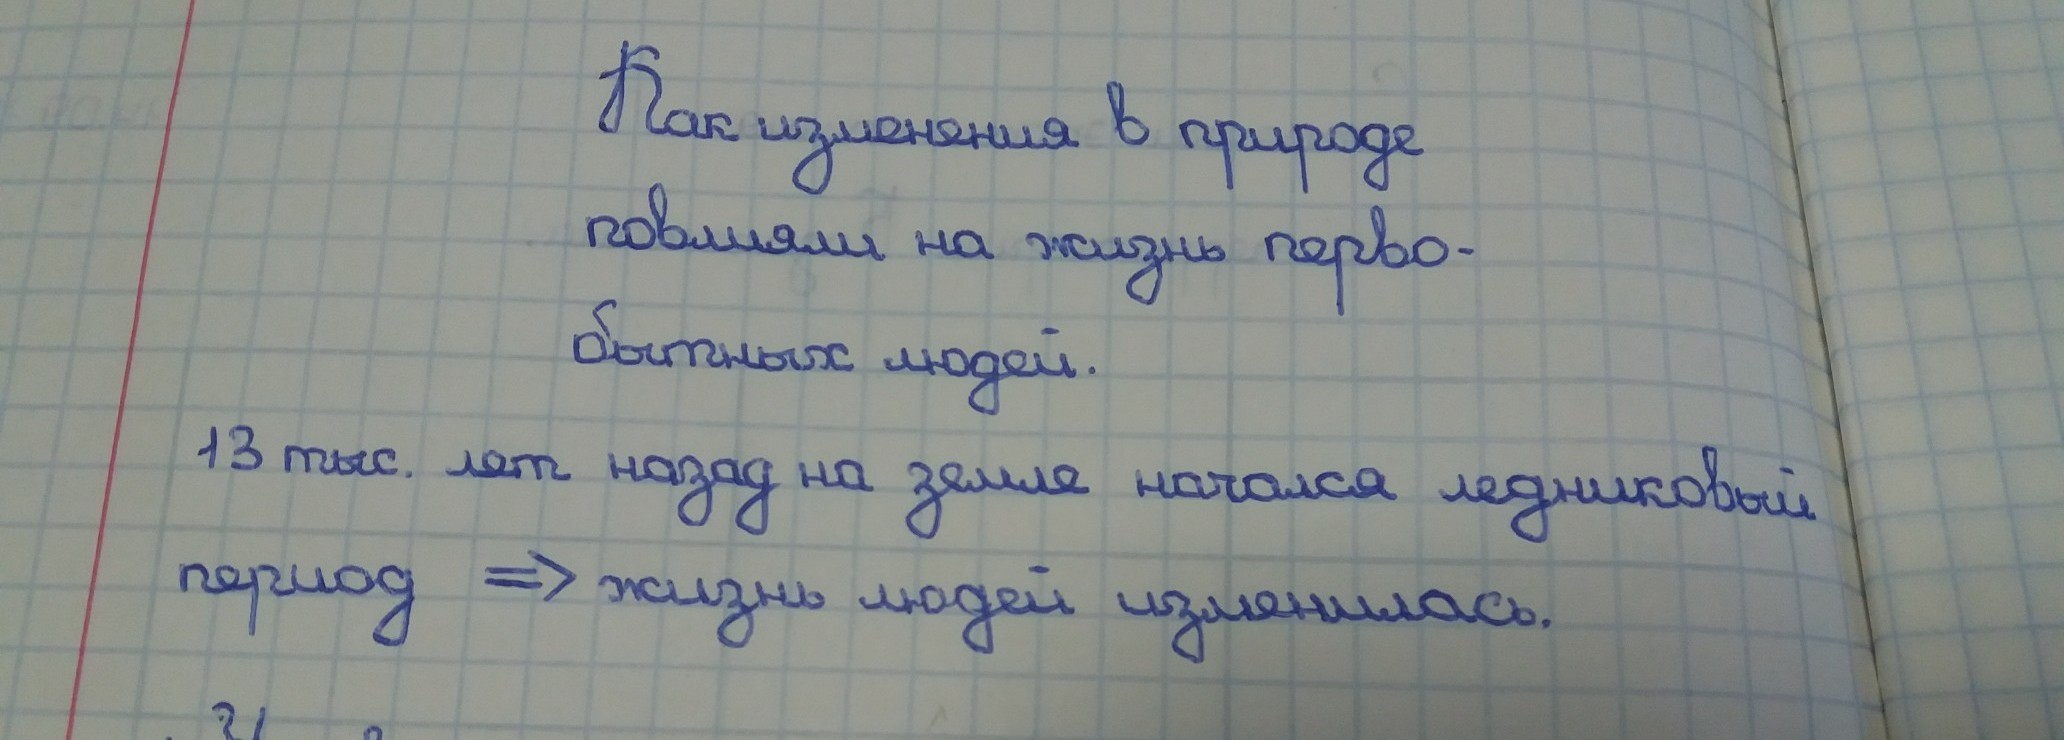 Как изменения в природе
повлияли на жизнь перво-
бытных людей.
13 тыс. лет назад на земле начался ледниковый
период => жизнь людей изменилась.